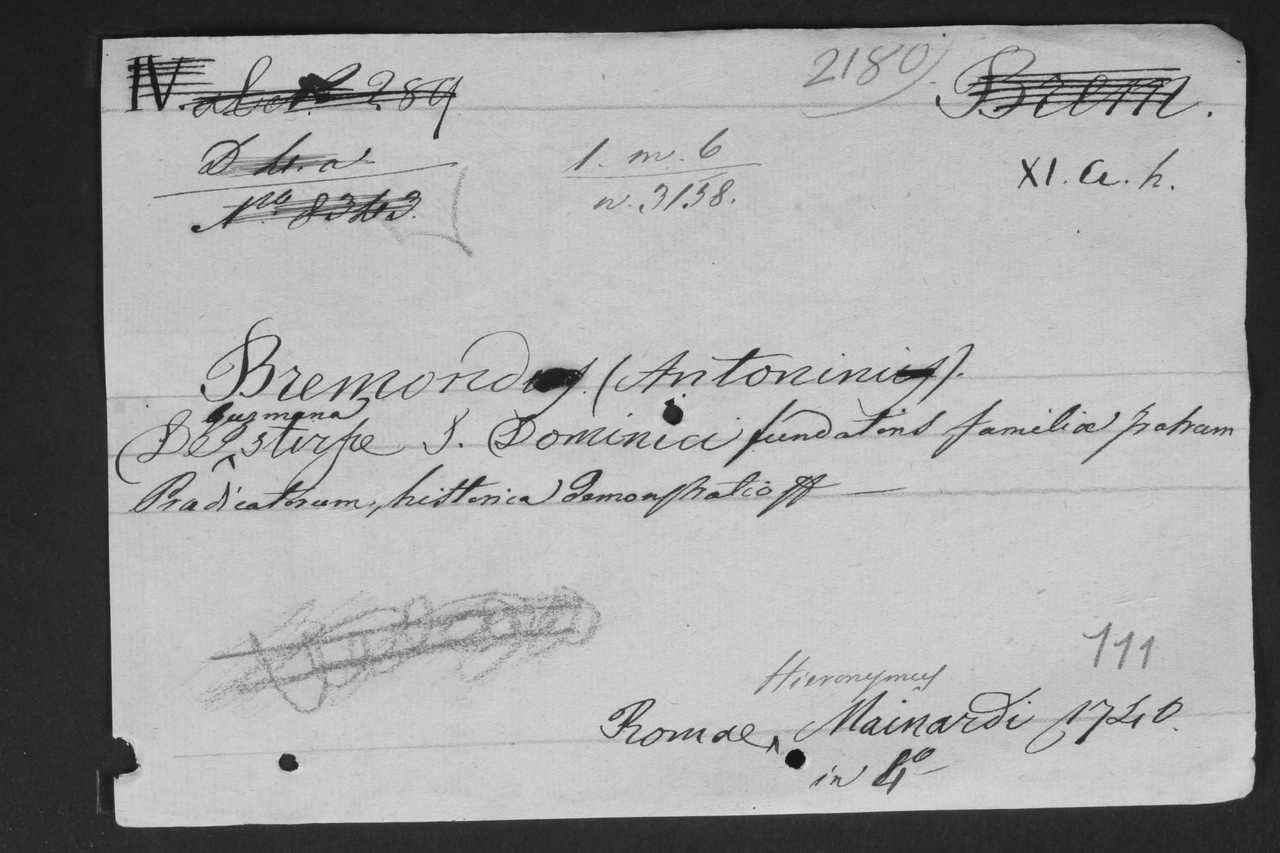 IV. 289
2180
Brem.
D
No. 8343.
1. m. 6
n. 3158.
XI. a. h.
Bremondus (Antoninus).
De guzmana stirpe S. Dominici fundatoris familiæ fratrum
Prædicatorum, historica demonstratio
111
Hieronymus
Romae, Mainardi 1740.
in 4º